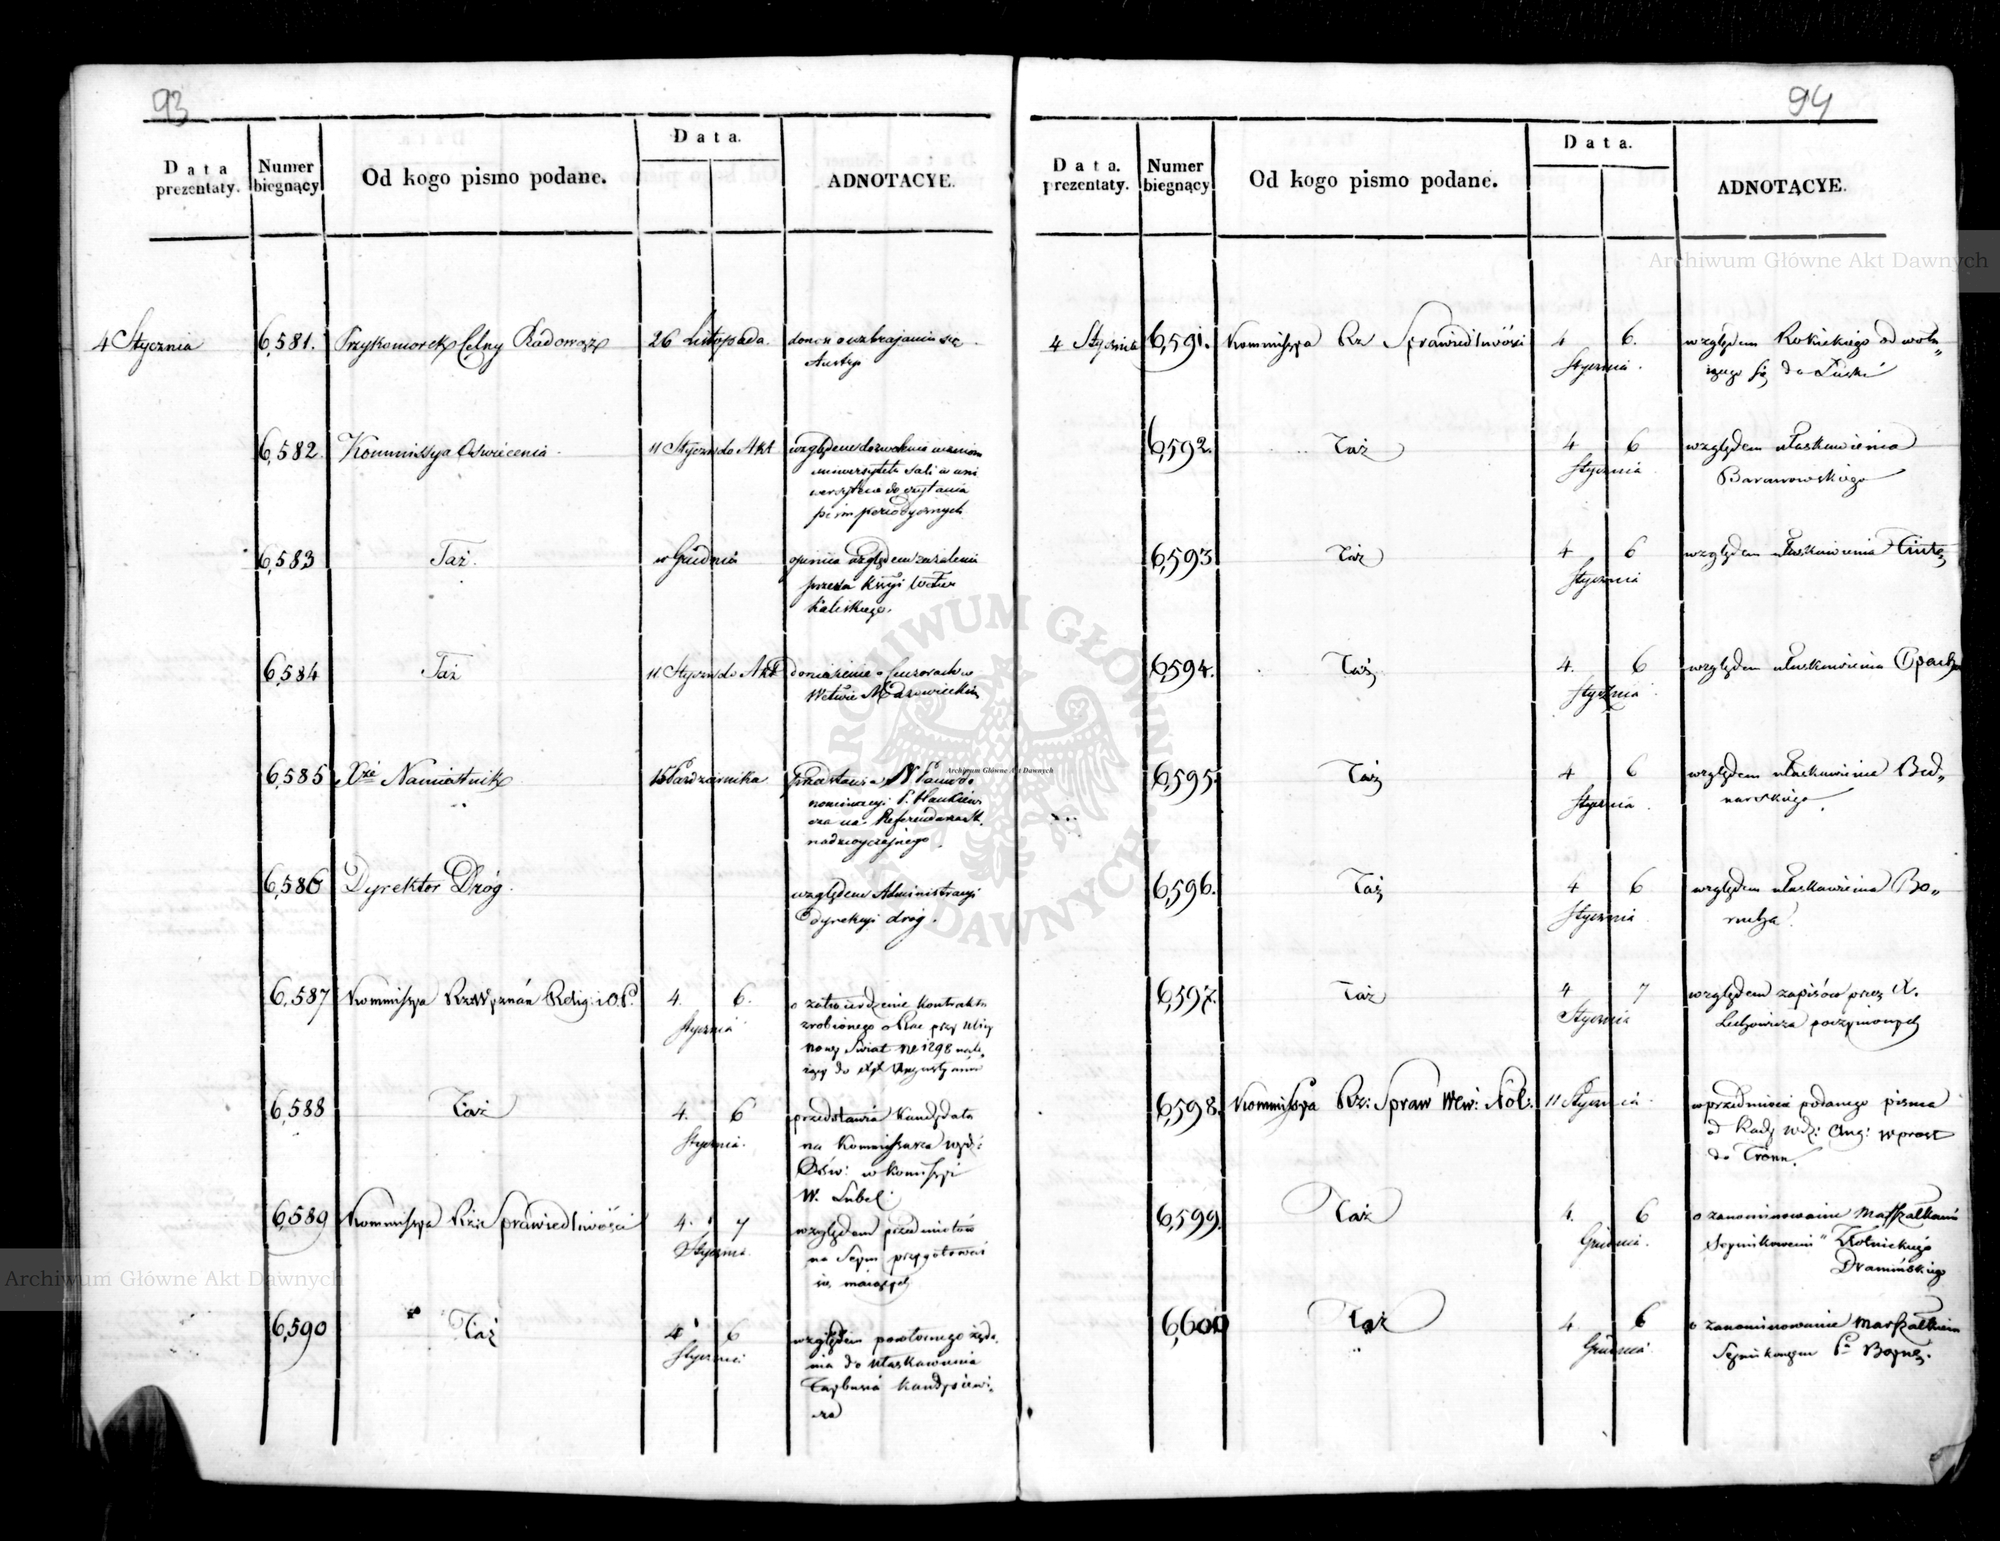 93
Data prezentaty.
Numer biegnący
Od kogo pismo podane.
Data.
ADNOTACYE.
4 Stycznia
6,581.
Przykomorek Celny Radoworz
26 Listopada.
donosi o uzbrajaniu się
Austryi
6,582.
Kommissya Oświecenia
11 Styczn: do Akt
względem dozwolenia uczniom
uniwersytetu Sali w uni
wersytecie do czytania
pism periodycznych
6,583
Taż.
w Grudniu
opinia względem zażalenia
Kaliskiego.
6,584
Taż
11 Styczn: do Akt
doniesienie o Cenzorach w
Wctwie Mazowieckim
6,585
Xże Namiestnik
Października
przedstawia
nominacyi P. Hankiew
cza na Referendarza St.
nadzwyczajnego.
6,586
Dyrektor Dróg.
względem Administracyi
Dyrekcyi dróg.
6,587
Kommissya Rz. Wyznań Relig: i O.P.
4. 6.
Stycznia
o zatwierdzenie kontraktu
zrobionego o Plac przy Ulicy
nowy Świat No 1298 nale
żący do
6,588
Taż
4. 6
Stycznia.
przedstawia kandydata
na Kommissarza wydz:
Ośw: w Komissyi
W. Lubel:
6,589
Kommissya Rz: Sprawiedliwości
4. 7
Stycznia.
względem przedmiotów
na Seym przygotować
się mających
6,590
Taż
4 6
Stycznia
względem powtórnego żąda
nia do ułaskawienia
94
Data. prezentaty.
Numer biegnący
Od kogo pismo podane.
Data.
ADNOTACYE.
4 Stycznia
6,591.
Kommissya Rz Sprawiedliwości
4 6.
Stycznia.
względem Rokickiego odwołu„
iącego się do Łaski
6,592.
Taż
4 6
Stycznia
względem ułaskawienia
Baranowskiego
6,593
Taż
4 6
Stycznia
względem ułaskawienia
6,594.
Taż
4. 6
Stycznia
względem ułaskawienia
6,595
Taż
4 6
Stycznia
względem ułaskawienia Bed„
narskiego.
6,596.
Taż
4 6
Stycznia
względem ułaskawienia Bo„
rucha.
6,597.
Taż
4 7
Stycznia
względem zapisów przez X.
Lechowicza poczynionych
6,598.
Kommissya Rz: Spraw Wew: i Pol:
11 Stycznia
w przedmiocie podanego pisma
od Rady wprost
do Tronu.
6,599.
Taż
4. 6
Grudnia.
o zanominowanie Marszałkami
Seymikowemi
Dramińskiego
6,600
Taż
4. 6
Grudnia
o zanominowanie Marszałkiem
Seymikowym
Archiwum Główne Akt Dawnych
Archiwum Główne Akt Dawnych
Archiwum Główne Akt Dawnych
ARCHIWUM GŁÓWNE AKT DAWNYCH